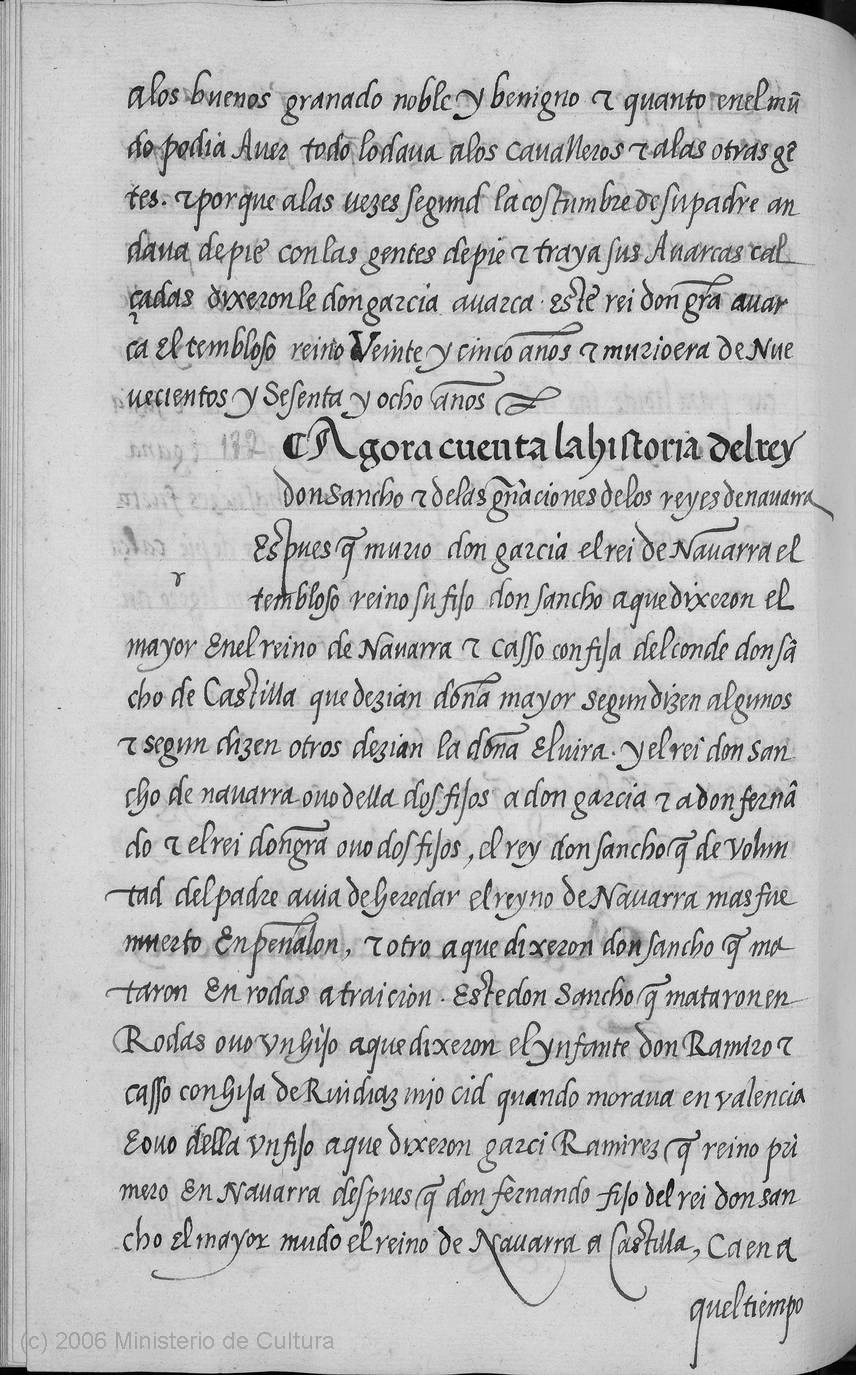 alos buenos granado noble y benigno τ quanto enel mũ
do podia Auer todo lo daua alos cavalleros τ alas otras gẽ
tes. τ porque alas vezes segund la costumbre de su padre an
daua de pie con las gentes de pie τ traya sus Auarcas cal
çadas dixeronle don garcia auarca. Este rei don gr̃a auar
ca El tembloso reino Veinte y cinco años τ murio era de Nue
uecientos y Sesenta y ocho años
Agora cuenta la historia del rey
don Sancho τ delas gñraciones delos reyes de nauarra
Espues q̃ murio don garcia el rei de Nauarra el
r
tembloso reino su fijo don sancho a que dixeron el
mayor Enel reino de Nauarra τ casso con fija del conde don sã
cho de Castilla que dezian doña mayor segun dizen algunos
τ segun dizen otros dezian la doña Eluira. y el rei don san
cho de nauarra ouo della dos fijos a don garcia τ a don fernã
do τ el rei don gr̃a ouo dos fijos, el rey don sancho q̃ de volun
tad del padre auia de heredar el reyno de Nauarra mas fue
muerto En peñalon, τ otro a que dixeron don sancho q̃ ma
taron En rodas a traicion. Este don Sancho q̃ mataron en
Rodas ouo vn hijo a que dixeron el ynfante don Ramiro τ
casso con hija de Rui diaz mio cid quando moraua en valencia
E ouo della vn fijo a que dixeron garci Ramirez q̃ reino pri
mero En Nauarra despues q̃ don fernando fijo del rei don san
cho El mayor mudo el reino de Nauarra a Castilla, Ca en a
quel tiempo
(c) 2006 Ministerio de Cultura